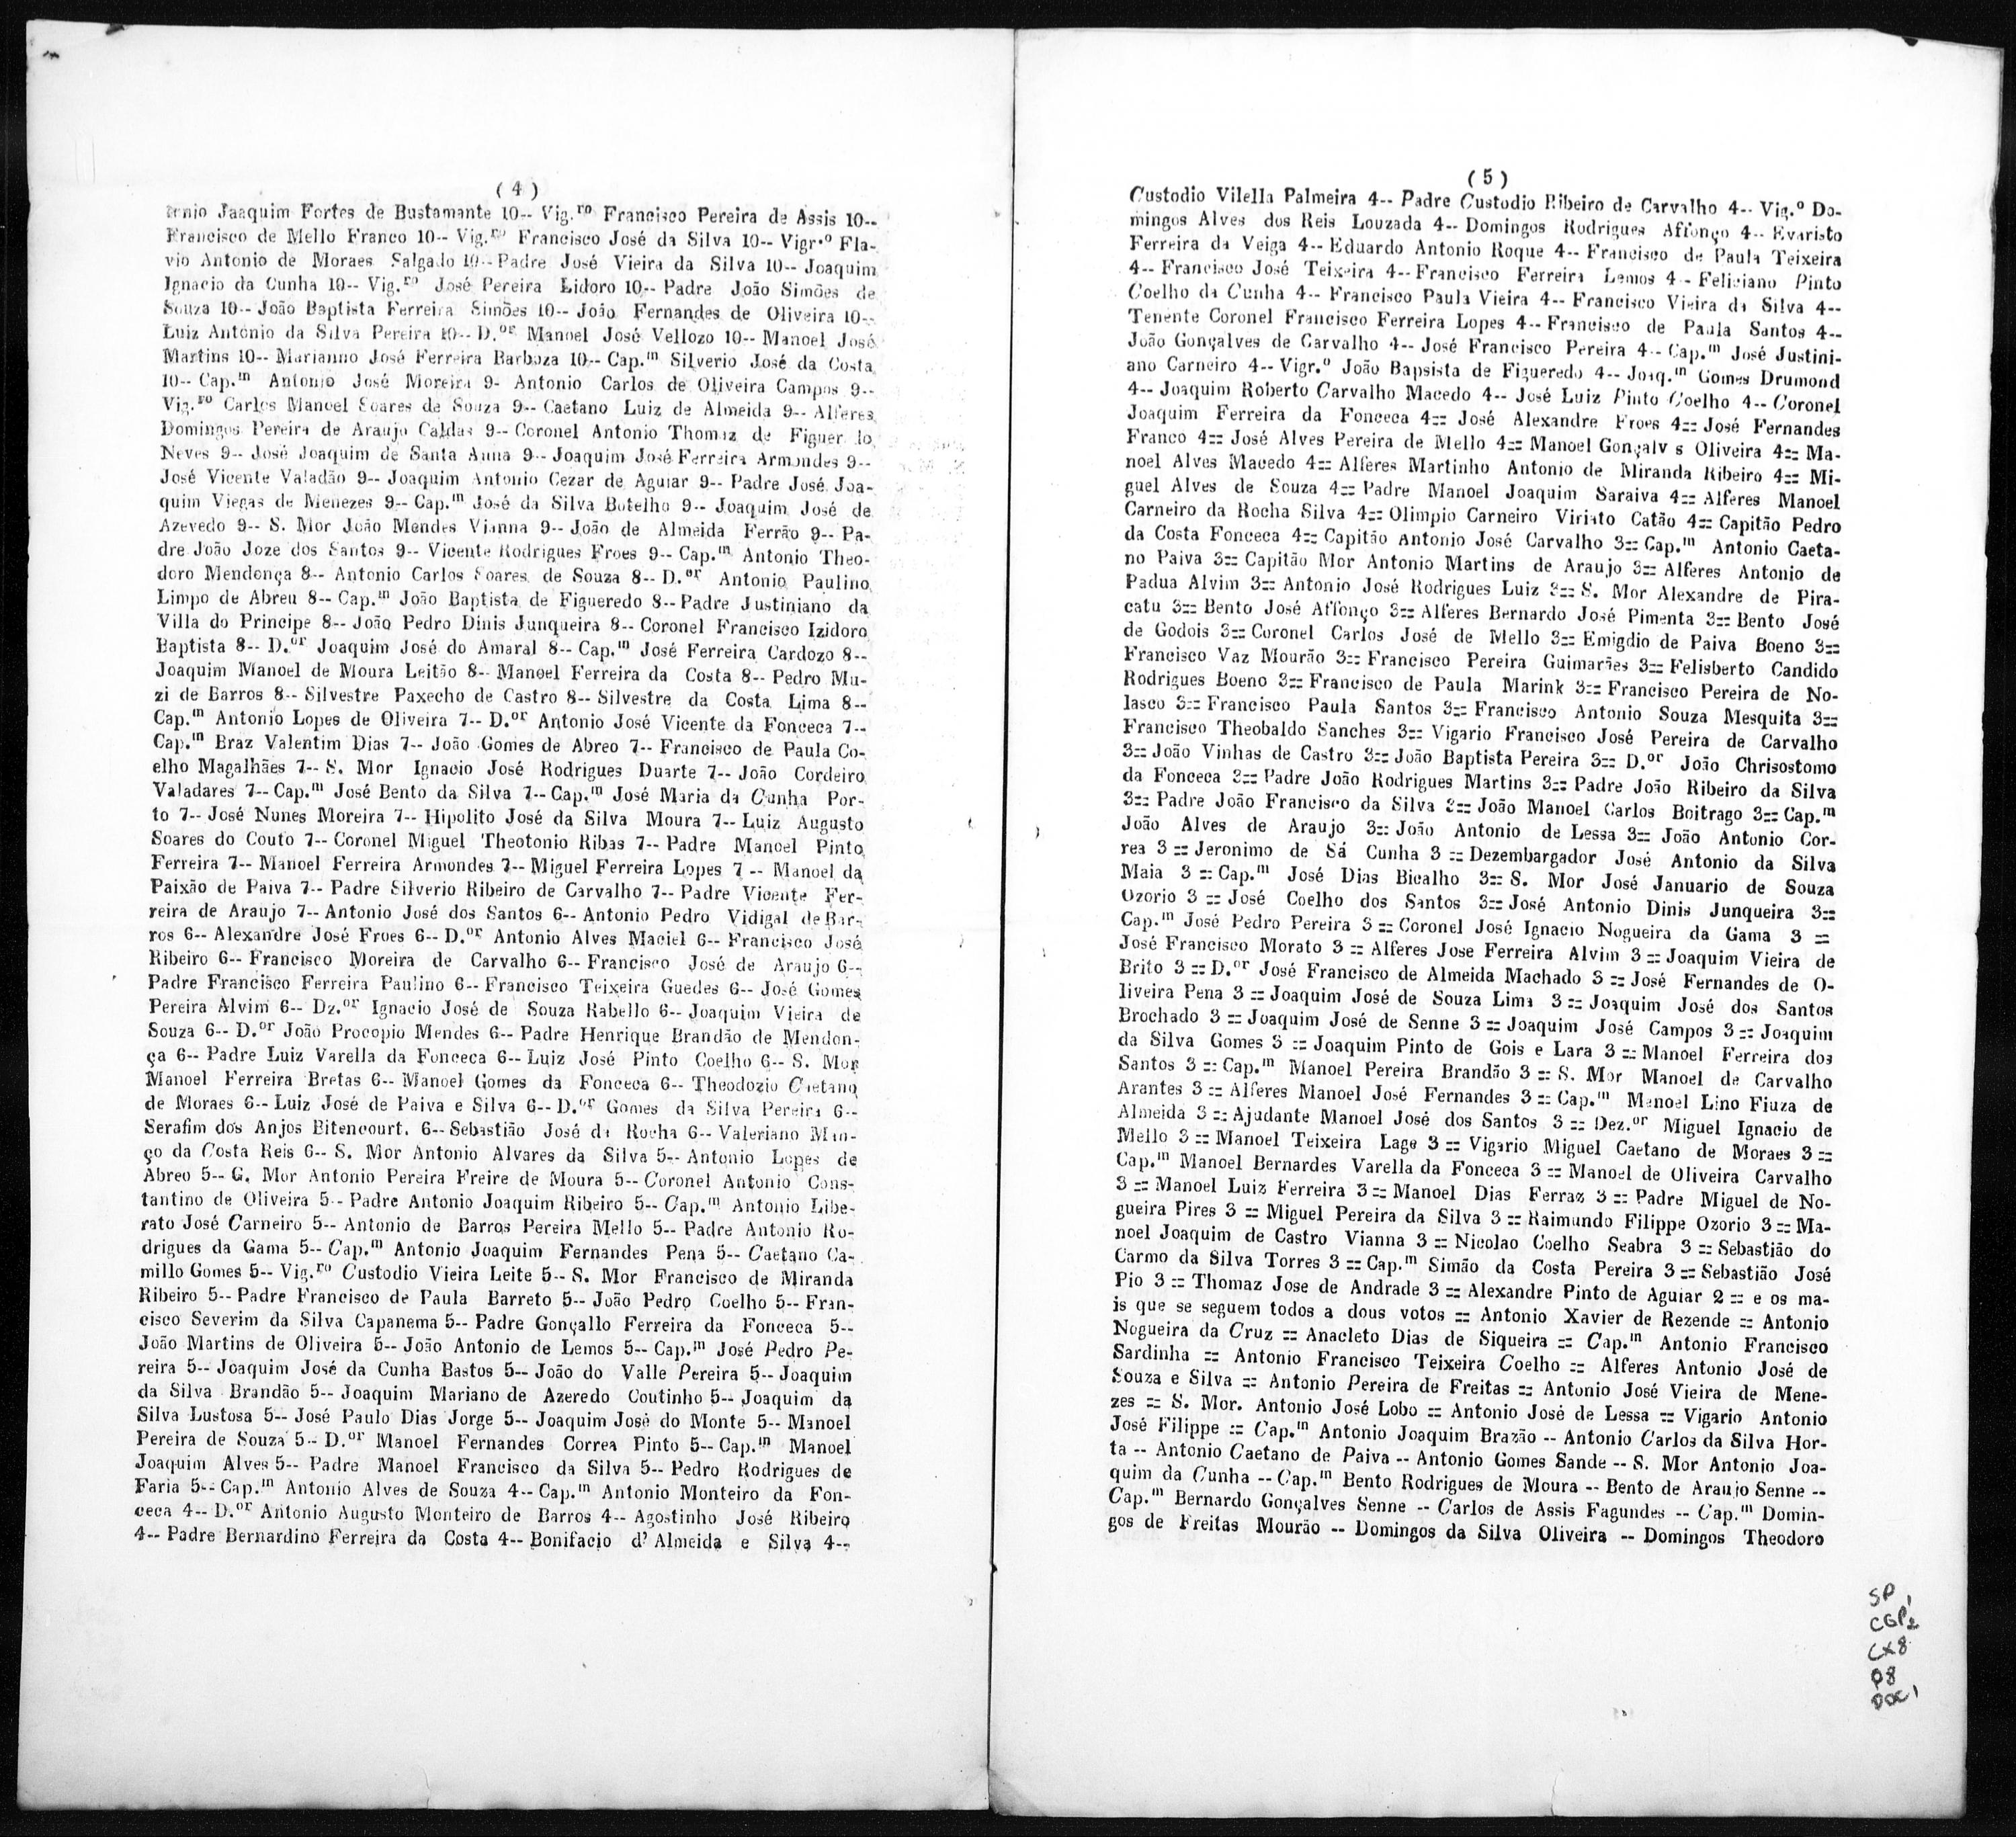 ( 4 )
tonio Jaaquim Fortes de Bustamante 10-- Vig.ro Francisco Pereira de Assis 10--
Francisco de Mello Franco 10-- Vig.ro Francisco José da Silva 10-- Vigr.o Fla-
vio Antonio de Moraes Salgado 10-- Padre José Vieira da Silva 10-- Joaquim
Ignacio da Cunha 10-- Vig.ro José Pereira Lidoro 10-- Padre João Simões de
Souza 10-- João Baptista Ferreira Simões 10-- João Fernandes de Oliveira 10--
Luiz Antonio da Silva Pereira 10-- D.or Manoel José Vellozo 10-- Manoel José
Martins 10-- Marianno José Ferreira Barboza 10-- Cap.m Silverio José da Costa
10-- Cap.m Antonio José Moreira 9- Antonio Carlos de Oliveira Campos 9--
Vig.ro Carlos Manoel Soares de Souza 9-- Caetano Luiz de Almeida 9-- Alferes
Domingos Pereira de Araujo Caldas 9-- Coronel Antonio Thomaz de Figuer do
Neves 9-- José Joaquim de Santa Anna 9-- Joaquim José Ferreira Armondes 9--
José Vicente Valadão 9-- Joaquim Antonio Cezar de Aguiar 9-- Padre José Joa-
quim Viegas de Menezes 9-- Cap.m José da Silva Botelho 9-- Joaquim José de
Azevedo 9-- S. Mor João Mendes Vianna 9-- João de Almeida Ferrão 9-- Pa-
dre João Joze dos Santos 9-- Vicente Rodrigues Froes 9-- Cap.m Antonio Theo-
doro Mendonça 8-- Antonio Carlos Soares de Souza 8-- D.or Antonio Paulino
Limpo de Abreu 8-- Cap.m João Baptista de Figueredo 8-- Padre Justiniano da
Villa do Principe 8-- João Pedro Dinis Junqueira 8-- Coronel Francisco Izidoro
Baptista 8-- D.or Joaquim José do Amaral 8-- Cap.m José Ferreira Cardozo 8--
Joaquim Manoel de Moura Leitão 8-- Manoel Ferreira da Costa 8-- Pedro Mu-
zi de Barros 8-- Silvestre Paxecho de Castro 8-- Silvestre da Costa Lima 8--
Cap.m Antonio Lopes de Oliveira 7-- D.or Antonio José Vicente da Fonceca 7--
Cap.m Braz Valentim Dias 7-- João Gomes de Abreo 7-- Francisco de Paula Co-
elho Magalhães 7-- S. Mor Ignacio José Rodrigues Duarte 7-- João Cordeiro
Valadares 7-- Cap.m José Bento da Silva 7-- Cap.m José Maria da Cunha Por-
to 7-- José Nunes Moreira 7-- Hipolito José da Silva Moura 7-- Luiz Augusto
Soares do Couto 7-- Coronel Miguel Theotonio Ribas 7-- Padre Manoel Pinto
Ferreira 7-- Manoel Ferreira Armondes 7-- Miguel Ferreira Lopes 7 -- Manoel da
Paixão de Paiva 7-- Padre Silverio Ribeiro de Carvalho 7-- Padre Vicente Fer-
reira de Araujo 7-- Antonio José dos Santos 6-- Antonio Pedro Vidigal de Bar-
ros 6-- Alexandre José Froes 6-- D.or Antonio Alves Maciel 6-- Francisco José
Ribeiro 6-- Francisco Moreira de Carvalho 6-- Francisco José de Araujo 6--
Padre Francisco Ferreira Paulino 6-- Francisco Teixeira Guedes 6-- José Gomes
Pereira Alvim 6-- Dz.or Ignacio José de Souza Rabello 6-- Joaquim Vieira de
Souza 6-- D.or João Procopio Mendes 6-- Padre Henrique Brandão de Mendon-
ça 6-- Padre Luiz Varella da Fonceca 6-- Luiz José Pinto Coelho 6-- S. Mor
Manoel Ferreira Bretas 6-- Manoel Gomes da Fonceca 6-- Theodozio Caetano
de Moraes 6-- Luiz José de Paiva e Silva 6-- D.or Gomes da Silva Pereira 6--
Serafim dos Anjos Bitencourt. 6-- Sebastião José da Rocha 6-- Valeriano Man-
ço da Costa Reis 6-- S. Mor Antonio Alvares da Silva 5-- Antonio Lopes de
Abreo 5-- G. Mor Antonio Pereira Freire de Moura 5-- Coronel Antonio Cons-
tantino de Oliveira 5-- Padre Antonio Joaquim Ribeiro 5-- Cap.m Antonio Libe-
rato José Carneiro 5-- Antonio de Barros Pereira Mello 5-- Padre Antonio Ro-
drigues da Gama 5-- Cap.m Antonio Joaquim Fernandes Pena 5-- Caetano Ca-
millo Gomes 5-- Vig.ro Custodio Vieira Leite 5-- S. Mor Francisco de Miranda
Ribeiro 5-- Padre Francisco de Paula Barreto 5-- João Pedro Coelho 5-- Fran-
cisco Severim da Silva Capanema 5-- Padre Gonçallo Ferreira da Fonceca 5--
João Martins de Oliveira 5-- João Antonio de Lemos 5-- Cap.m José Pedro Pe-
reira 5-- Joaquim José da Cunha Bastos 5-- João do Valle Pereira 5-- Joaquim
da Silva Brandão 5-- Joaquim Mariano de Azeredo Coutinho 5-- Joaquim da
Silva Lustosa 5-- José Paulo Dias Jorge 5-- Joaquim José do Monte 5-- Manoel
Pereira de Souza 5-- D.or Manoel Fernandes Correa Pinto 5-- Cap.m Manoel
Joaquim Alves 5-- Padre Manoel Francisco da Silva 5-- Pedro Rodrigues de
Faria 5-- Cap.m Antonio Alves de Souza 4-- Cap.m Antonio Monteiro da Fon-
ceca 4-- D.or Antonio Augusto Monteiro de Barros 4-- Agostinho José Ribeiro
4-- Padre Bernardino Ferreira da Costa 4-- Bonifacio d' Almeida e Silva 4--
( 5 )
Custodio Vilella Palmeira 4-- Padre Custodio Ribeiro de Carvalho 4-- Vig.o Do-
mingos Alves dos Reis Louzada 4-- Domingos Rodrigues Affonço 4-- Evaristo
Ferreira da Veiga 4-- Eduardo Antonio Roque 4-- Francisco de Paula Teixeira
4-- Francisco José Teixeira 4-- Francisco Ferreira Lemos 4-- Feliciano Pinto
Coelho da Cunha 4-- Francisco Paula Vieira 4-- Francisco Vieira da Silva 4--
Tenente Coronel Francisco Ferreira Lopes 4-- Francisco de Paula Santos 4--
João Gonçalves de Carvalho 4-- José Francisco Pereira 4-- Cap.m José Justini-
ano Carneiro 4-- Vigr.o João Bapsista de Figueredo 4-- Joaq.m Gomes Drumond
4-- Joaquim Roberto Carvalho Macedo 4-- José Luiz Pinto Coelho 4-- Coronel
Joaquim Ferreira da Fonceca 4== José Alexandre Froes 4== José Fernandes
Franco 4== José Alves Pereira de Mello 4== Manoel Gonçalv s Oliveira 4== Ma-
noel Alves Macedo 4== Alferes Martinho Antonio de Miranda Ribeiro 4== Mi-
guel Alves de Souza 4== Padre Manoel Joaquim Saraiva 4== Alferes Manoel
Carneiro da Rocha Silva 4== Olimpio Carneiro Viriato Catão 4== Capitão Pedro
da Costa Fonceca 4== Capitão Antonio José Carvalho 3== Cap.m Antonio Caeta-
no Paiva 3== Capitão Mor Antonio Martins de Araujo 3== Alferes Antonio de
Padua Alvim 3== Antonio José Rodrigues Luiz 3== S. Mor Alexandre de Pira-
catu 3== Bento José Affonço 3== Alferes Bernardo José Pimenta 3== Bento José
de Godois 3== Coronel Carlos José de Mello 3== Emigdio de Paiva Boeno 3==
Francisco Vaz Mourão 3== Francisco Pereira Guimarães 3== Felisberto Candido
Rodrigues Boeno 3== Francisco de Paula Marink 3== Francisco Pereira de No-
lasco 3== Francisco Paula Santos 3== Francisco Antonio Souza Mesquita 3==
Francisco Theobaldo Sanches 3== Vigario Francisco José Pereira de Carvalho
3== João Vinhas de Castro 3== João Baptista Pereira 3== D.or João Chrisostomo
da Fonceca 3== Padre João Rodrigues Martins 3== Padre João Ribeiro da Silva
3== Padre João Francisco da Silva 3== João Manoel Carlos Boitrago 3== Cap.m
João Alves de Araujo 3== João Antonio de Lessa 3== João Antonio Cor-
rea 3 == Jeronimo de Sá Cunha 3 == Dezembargador José Antonio da Silva
Maia 3 == Cap.m José Dias Bicalho 3== S. Mor José Januario de Souza
Ozorio 3 == José Coelho dos Santos 3== José Antonio Dinis Junqueira 3==
Cap.m José Pedro Pereira 3 == Coronel José Ignacio Nogueira da Gama 3 ==
José Francisco Morato 3 == Alferes Jose Ferreira Alvim 3 == Joaquim Vieira de
Brito 3 == D.or José Francisco de Almeida Machado 3 == José Fernandes de O-
liveira Pena 3 == Joaquim José de Souza Lima 3 == Joaquim José dos Santos
Brochado 3 == Joaquim José de Senne 3 == Joaquim José Campos 3 == Joaquim
da Silva Gomes 3 == Joaquim Pinto de Gois e Lara 3 == Manoel Ferreira dos
Santos 3 == Cap.m Manoel Pereira Brandão 3 == S. Mor Manoel de Carvalho
Arantes 3 == Alferes Manoel José Fernandes 3 == Cap.m Manoel Lino Fiuza de
Almeida 3 == Ajudante Manoel José dos Santos 3 == Dez.or Miguel Ignacio de
Mello 3 == Manoel Teixeira Lage 3 == Vigario Miguel Caetano de Moraes 3 ==
Cap.m Manoel Bernardes Varella da Fonceca 3 == Manoel de Oliveira Carvalho
3 == Manoel Luiz Ferreira 3 == Manoel Dias Ferraz 3 == Padre Miguel de No-
gueira Pires 3 == Miguel Pereira da Silva 3 == Raimundo Filippe Ozorio 3 == Ma-
noel Joaquim de Castro Vianna 3 == Nicolao Coelho Seabra 3 == Sebastião do
Carmo da Silva Torres 3 == Cap.m Simão da Costa Pereira 3 == Sebastião José
Pio 3 == Thomaz Jose de Andrade 3 == Alexandre Pinto de Aguiar 2 == e os ma-
is que se seguem todos a dous votos == Antonio Xavier de Rezende == Antonio
Nogueira da Cruz == Anacleto Dias de Siqueira == Cap.m Antonio Francisco
Sardinha == Antonio Francisco Teixeira Coelho == Alferes Antonio José de
Souza e Silva == Antonio Pereira de Freitas == Antonio José Vieira de Mene-
zes == S. Mor. Antonio José Lobo == Antonio José de Lessa == Vigario Antonio
José Filippe == Cap.m Antonio Joaquim Brazão -- Antonio Carlos da Silva Hor-
ta -- Antonio Caetano de Paiva -- Antonio Gomes Sande -- S. Mor Antonio Joa-
quim da Cunha -- Cap.m Bento Rodrigues de Moura -- Bento de Araujo Senne --
Cap.m Bernardo Gonçalves Senne -- Carlos de Assis Fagundes -- Cap.m Domin-
gos de Freitas Mourão -- Domingos da Silva Oliveira -- Domingos Theodoro
SP 1
CGP2
CX8
P8
DOC 1